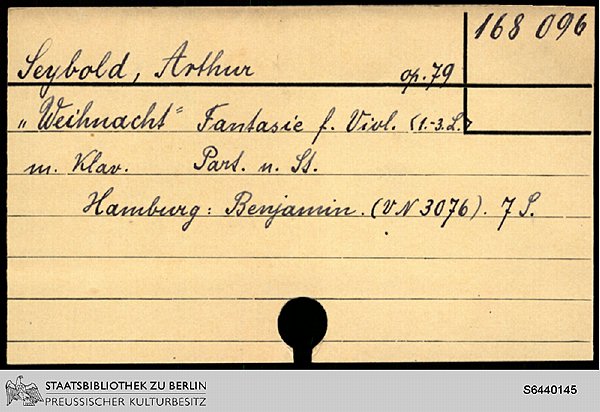 168 096
Seybold, Arthur op. 79
„Weihnacht" Fantasie f. Viol. (1.-3.L.)
m. Klav. Part. u. St.
Hamburg: Benjamin. (VN 3076). 7 S.
STAATSBIBLIOTHEK ZU BERLIN
PREUSSISCHER KULTURBESITZ
S6440145